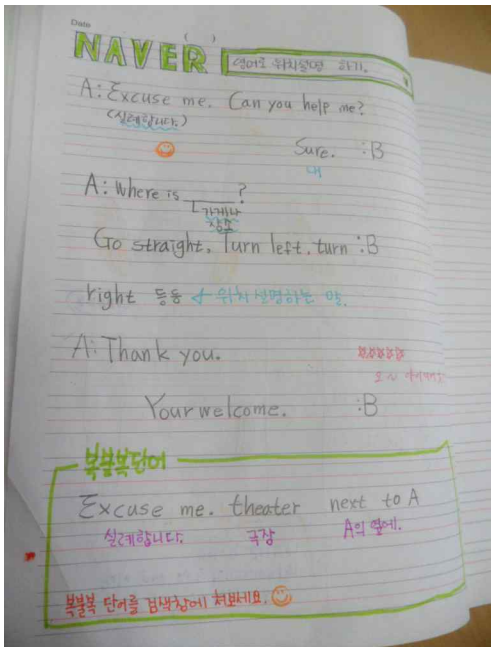 Date
( )
NAVER 영어로 위치설명 하기.
A: Excuse me. Can you help me?
(실례합니다.)
Sure. :B
네
A: Where is ______?
가게나
장소
Go straight, Turn left. turn :B
right 등등 위치 설명하는 말.
A: Thank you.
☆☆☆☆☆
Your welcome. :B
복불복단어
Excuse me. theater next to A
실례합니다. 극장 A의 옆에.
복불복 단어를 검색창에 쳐보세요.